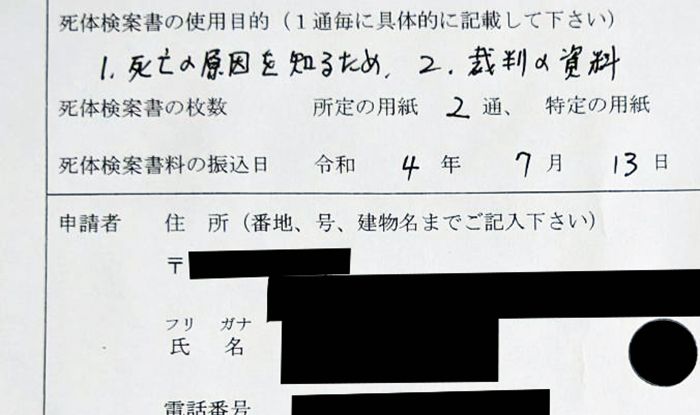 死体検案書の使用目的（１通毎に具体的に記載して下さい）
1. 死亡の原因を知るため、2. 裁判の資料
死体検案書の枚数　所定の用紙 2 通、特定の用紙
死体検案書料の振込日　令和 4 年 7 月 13 日
申請者　住　所（番地、号、建物名までご記入下さい）
〒
フリ　ガナ
氏　名
電話番号